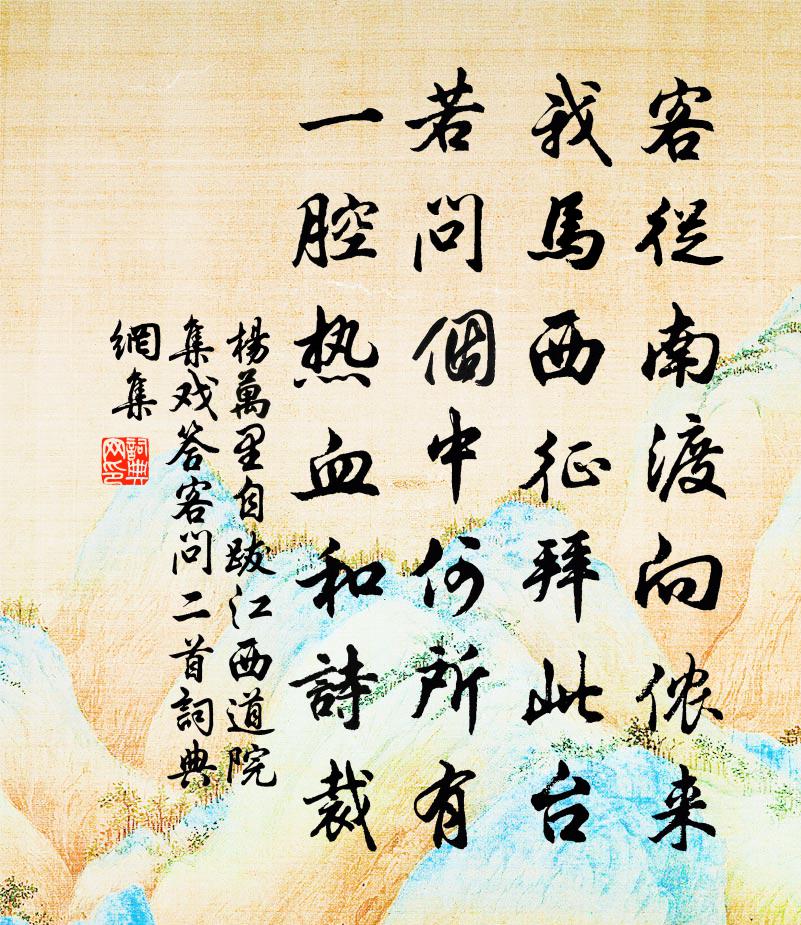 客從南渡向侬来
我馬西征拜此台
若問個中何所有
一腔热血和詩裁
楊萬里自跋江西道院
集戏答客問二首詞典
網集
詞典
网印